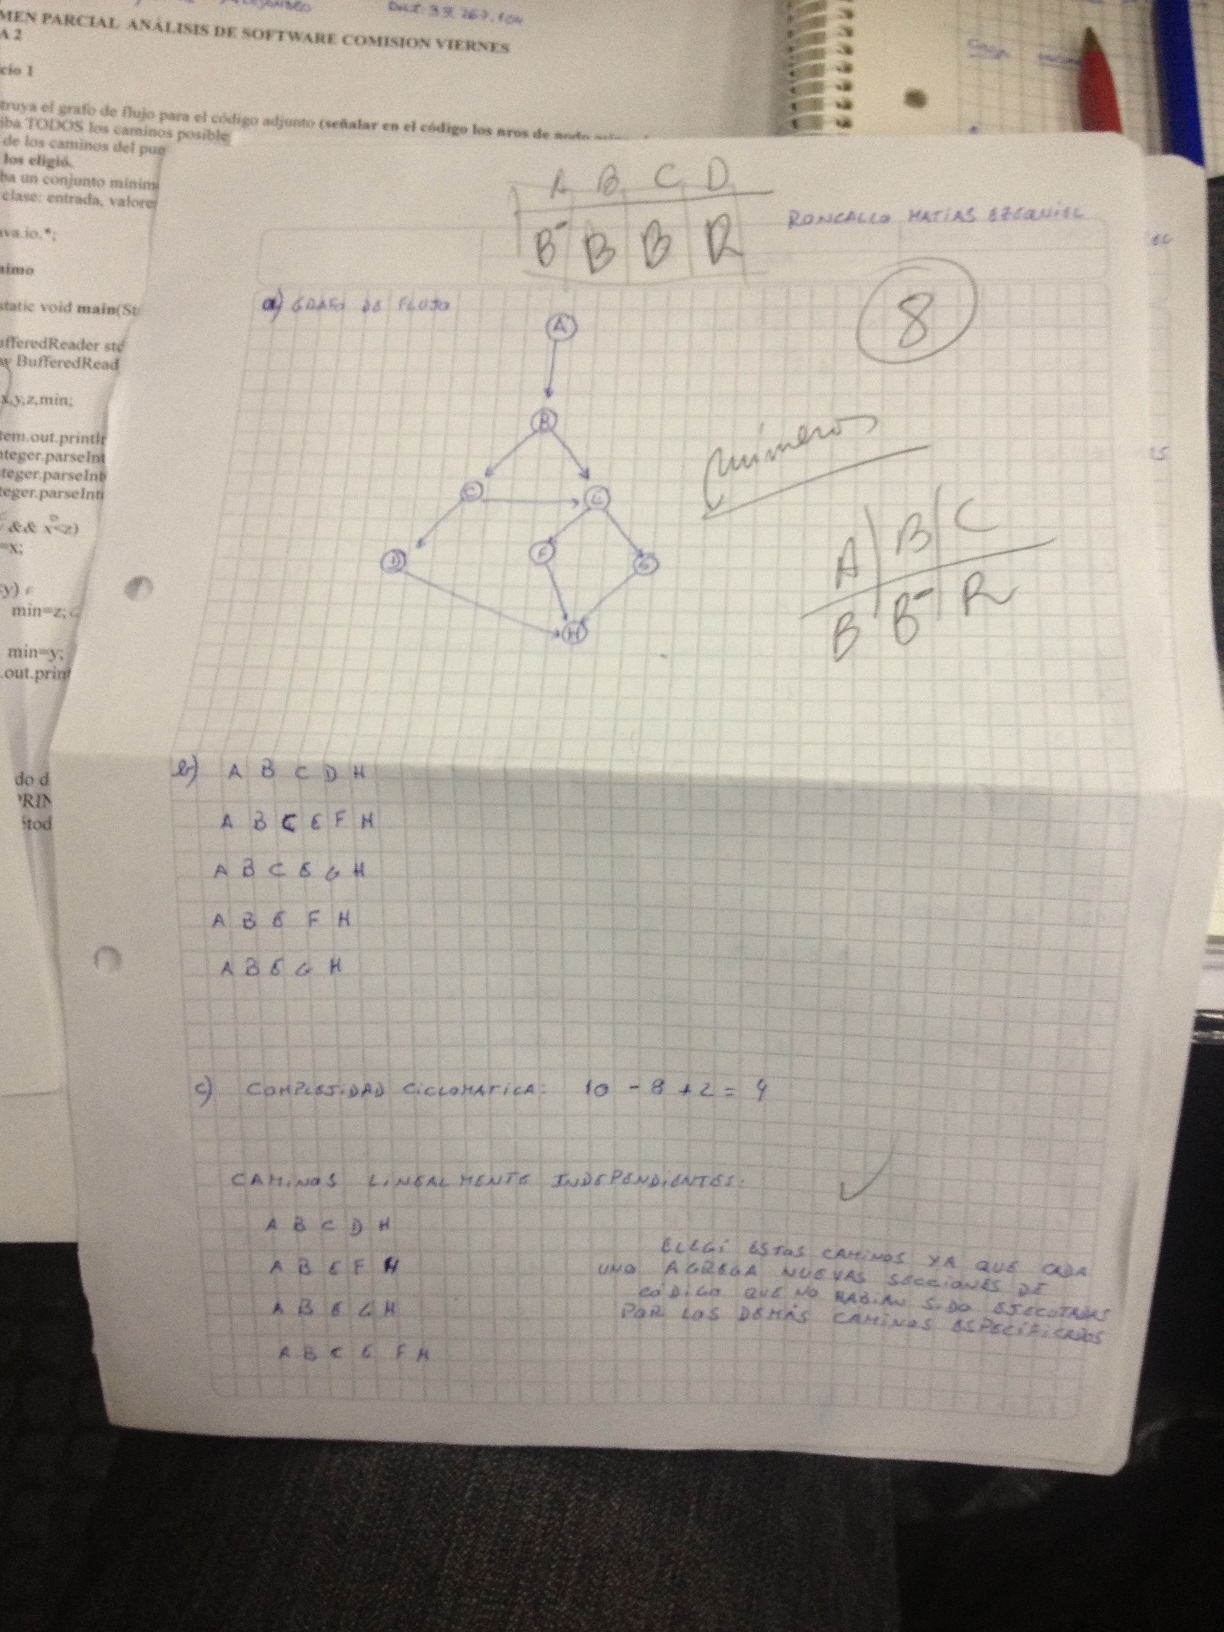 DNI: 39.267.104
MEN PARCIAL ANÁLISIS DE SOFTWARE COMISION VIERNES
A 2
cio 1
truya el grafo de flujo para el código adjunto (señalar en el código los nros de nodo
iba TODOS los caminos posible
de los caminos del pun
los eligió.
ba un conjunto mínim
clase: entrada, valore
va.io.*;
nimo
static void main(St
ufferedReader std
w BufferedRead
x,y,z,min;
tem.out.println
nteger.parseInt
teger.parseInt
teger.parseInt
&& x<z)
=x;
y)
min=z;
min=y;
.out.print
do d
PRIN
tod
A B C D
B- B B R
RONCALLO MATIAS EZEQUIEL
8
a) GRAFO DE FLUJO
A
B
C E
D F G
H
números
A B C
B B- R
b) A B C D H
A B C E F H
A B C E G H
A B E F H
A B E G H
c) COMPLEJIDAD CICLOMATICA: 10 - 8 + 2 = 4
CAMINOS LINEALMENTE INDEPENDIENTES:
A B C D H
A B E F H
A B E G H
A B C E F H
ELEGI ESTOS CAMINOS YA QUE CADA
UNO AGREGA NUEVAS SECCIONES DE
CÓDIGO QUE NO HABIAN SIDO EJECUTADAS
POR LOS DEMÁS CAMINOS ESPECIFICADOS